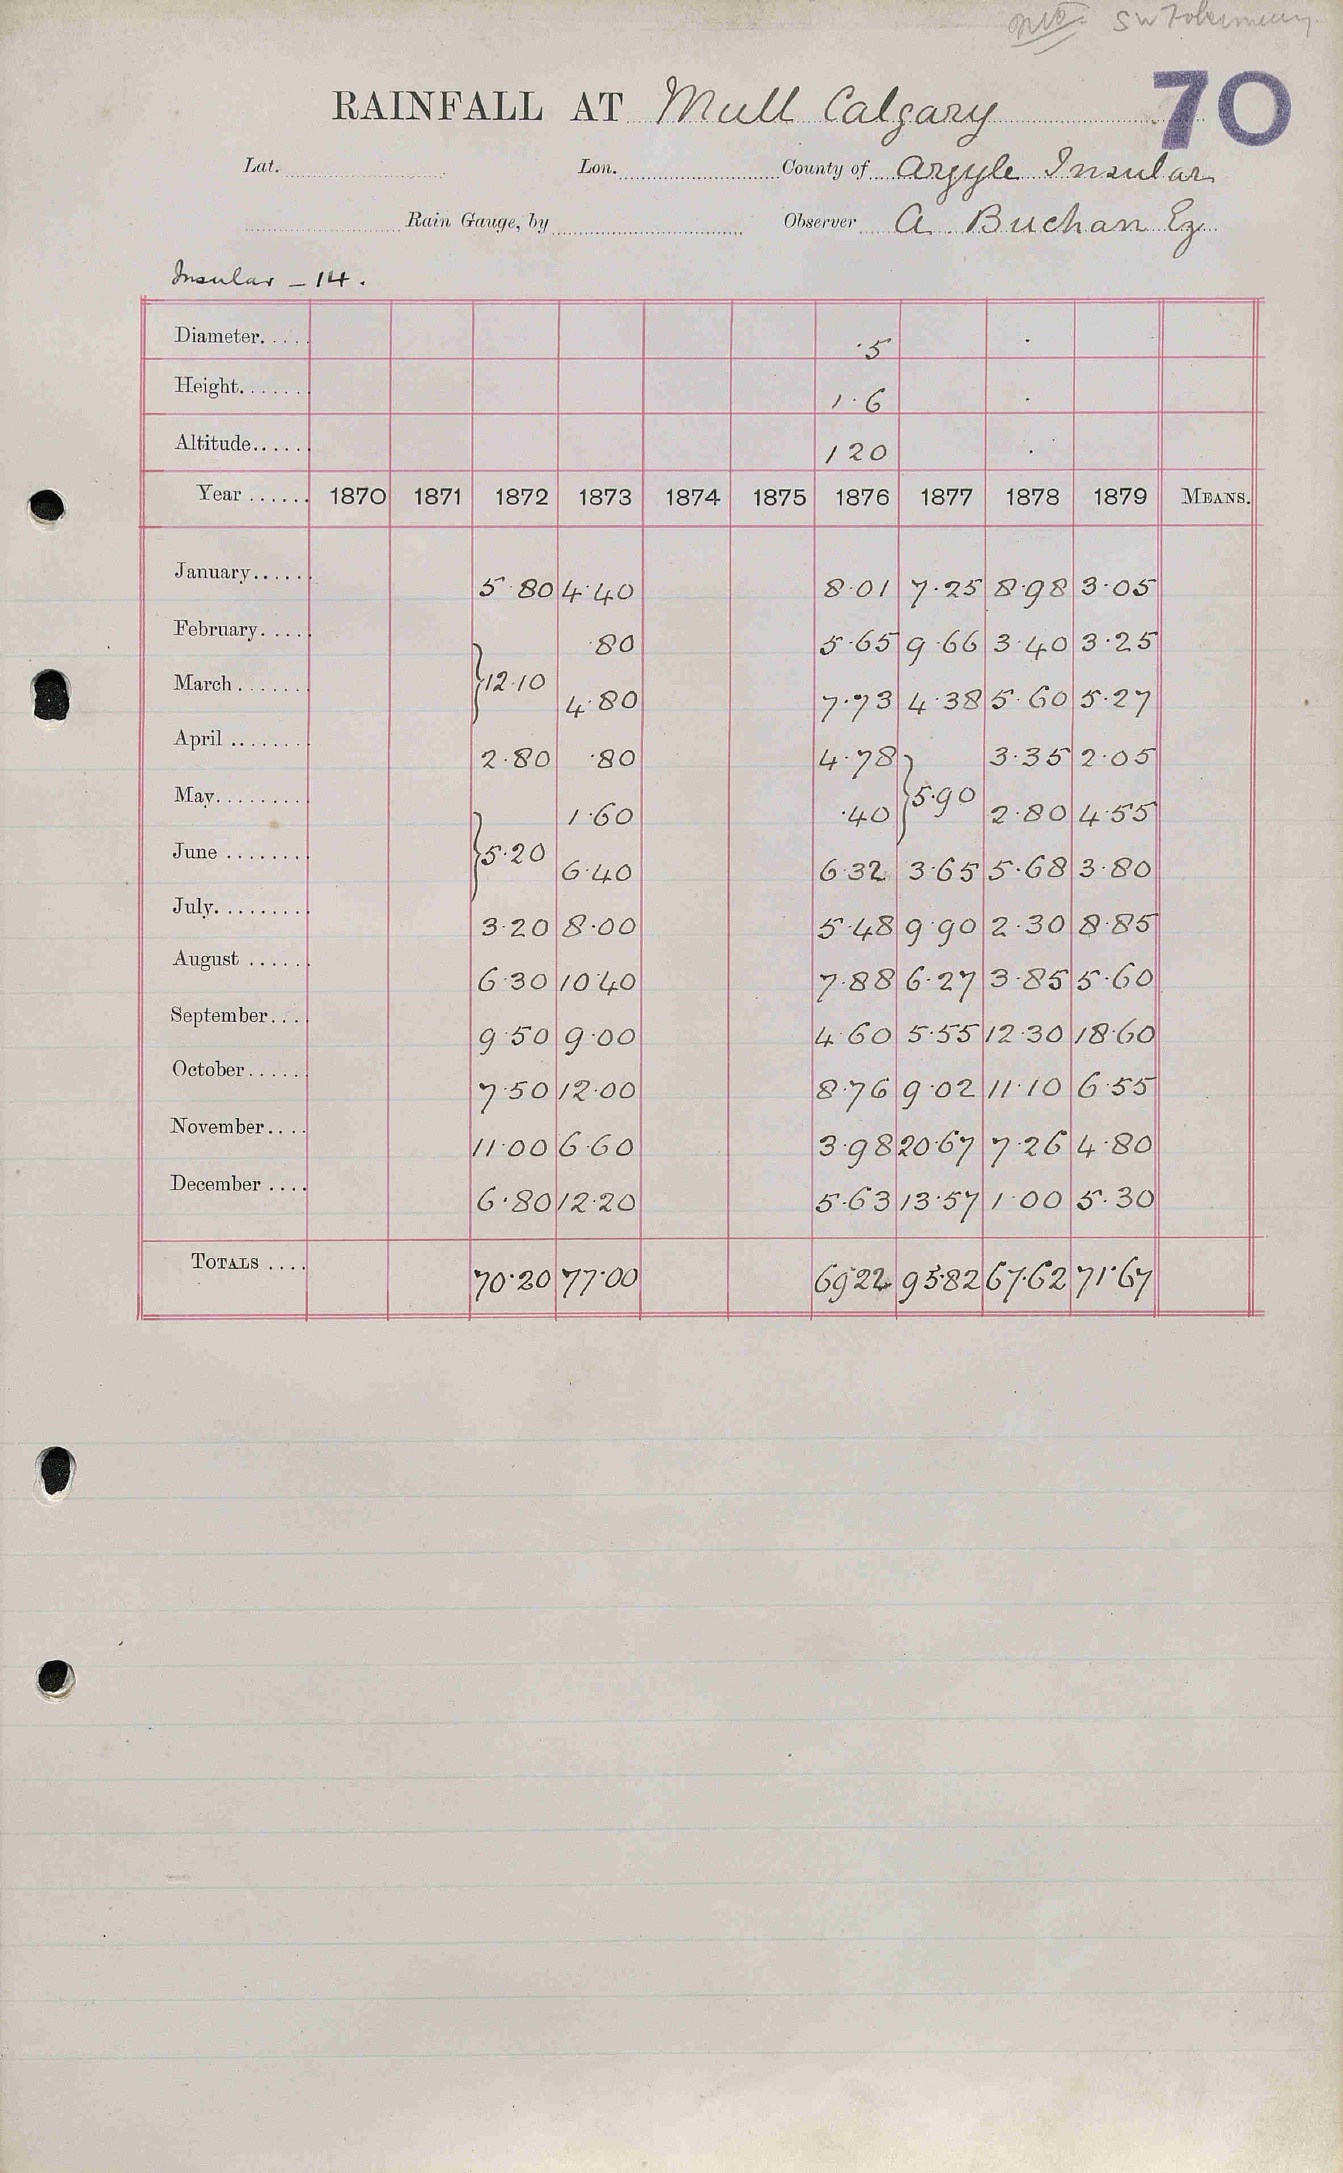 SW Tobermory
70
RAINFALL AT Mull Calgary
Lat. Lon. County of Argyle Insular
Rain Gauge, by Observer A. Buchan Ez
Insular - 14.
Diameter..... ·5
Height....... 1·6
Altitude...... 120
Year ...... 1870 1871 1872 1873 1874 1875 1876 1877 1878 1879 MEANS.
January...... 5·80 4·40 8·01 7·25 8·98 3·05
February..... ·80 5·65 9·66 3·40 3·25
March ....... }12·10 4·80 7·73 4·38 5·60 5·27
April ........ 2·80 ·80 4·78 3·35 2·05
May......... 1·60 ·40 }5·90 2·80 4·55
June ........ }5·20 6·40 6·32 3·65 5·68 3·80
July.......... 3·20 8·00 5·48 9·90 2·30 8·85
August ...... 6·30 10·40 7·88 6·27 3·85 5·60
September.... 9·50 9·00 4·60 5·55 12·30 18·60
October...... 7·50 12·00 8·76 9·02 11·10 6·55
November.... 11·00 6·60 3·98 20·67 7·26 4·80
December .... 6·80 12·20 5·63 13·57 1·00 5·30
TOTALS .... 70·20 77·00 69·22 95·82 67·62 71·67